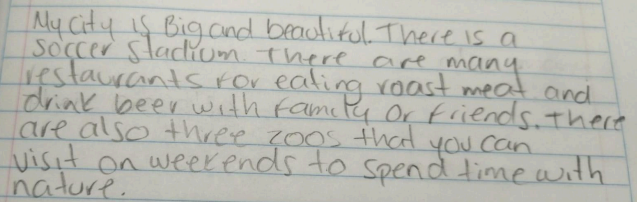 My city is Big and beautiful. There is a
soccer stadium. There are many
restaurants for eating roast meat and
drink beer with family or friends. There
are also three zoos that you can
visit on weekends to spend time with
nature.